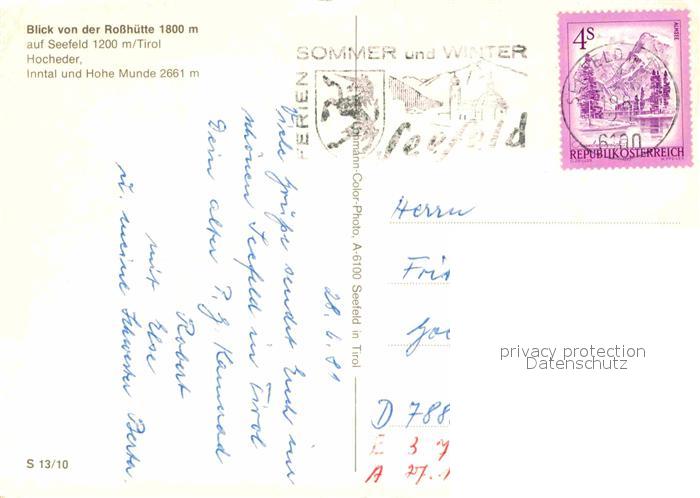 Blick von der Roßhütte 1800 m
auf Seefeld 1200 m/Tirol
Hocheder,
Inntal und Hohe Munde 2661 m
FERIEN
SOMMER und WINTER
Seefeld
4s
ALMSEE
REPUBLIK ÖSTERREICH
6100
mann-Color-Photo, A-6100 Seefeld in Tirol
28. 6. 81
Viele Grüße sendet Euch im
schönen Seefeld in Tirol
Dein alter P. G. Kamerad
Robert
mit Else
u. meine Schwester Berta.
Herrn
Fri
D 788
E 3
A 27.
S 13/10
privacy protection
Datenschutz